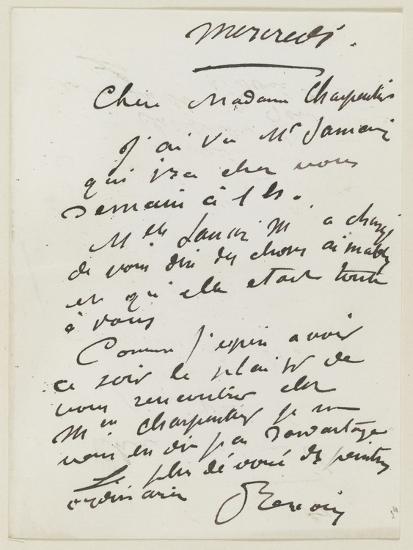 mercredi.
Chère Madame Charpentier
J'ai vu Mr
qui ira chez vous
demain à 1 h.
Mme m'a chargé
de vous dire des choses aimables
et qu'elle était toute
à vous
Comme j'espère avoir
ce soir le plaisir de
vous rencontrer chez
Mme Charpentier je ne
vous en dis pas davantage
Le plus dévoué des peintres
ordinaires Renoir